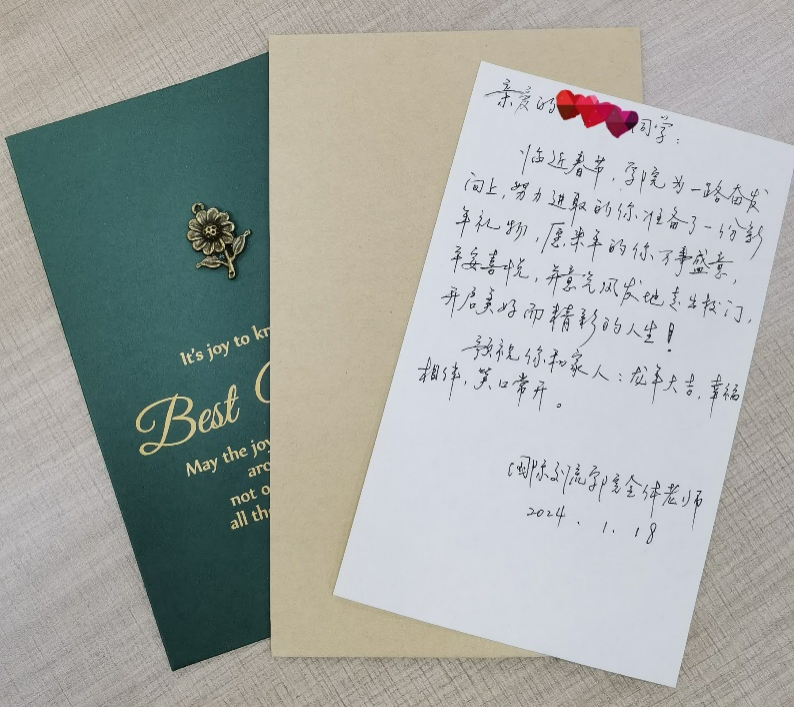 It's joy to kn
Best
May the joy
aro
not o
all the
亲爱的 同学：
临近春节，学院为一路奋发
向上，努力进取的你准备了一份新
年礼物，愿来年的你万事盛意，
平安喜悦，并意气风发地走出校门，
开启美好而精彩的人生！
预祝你和家人：龙年大吉，幸福
相伴，笑口常开。
国际交流学院全体老师
2024.1.18